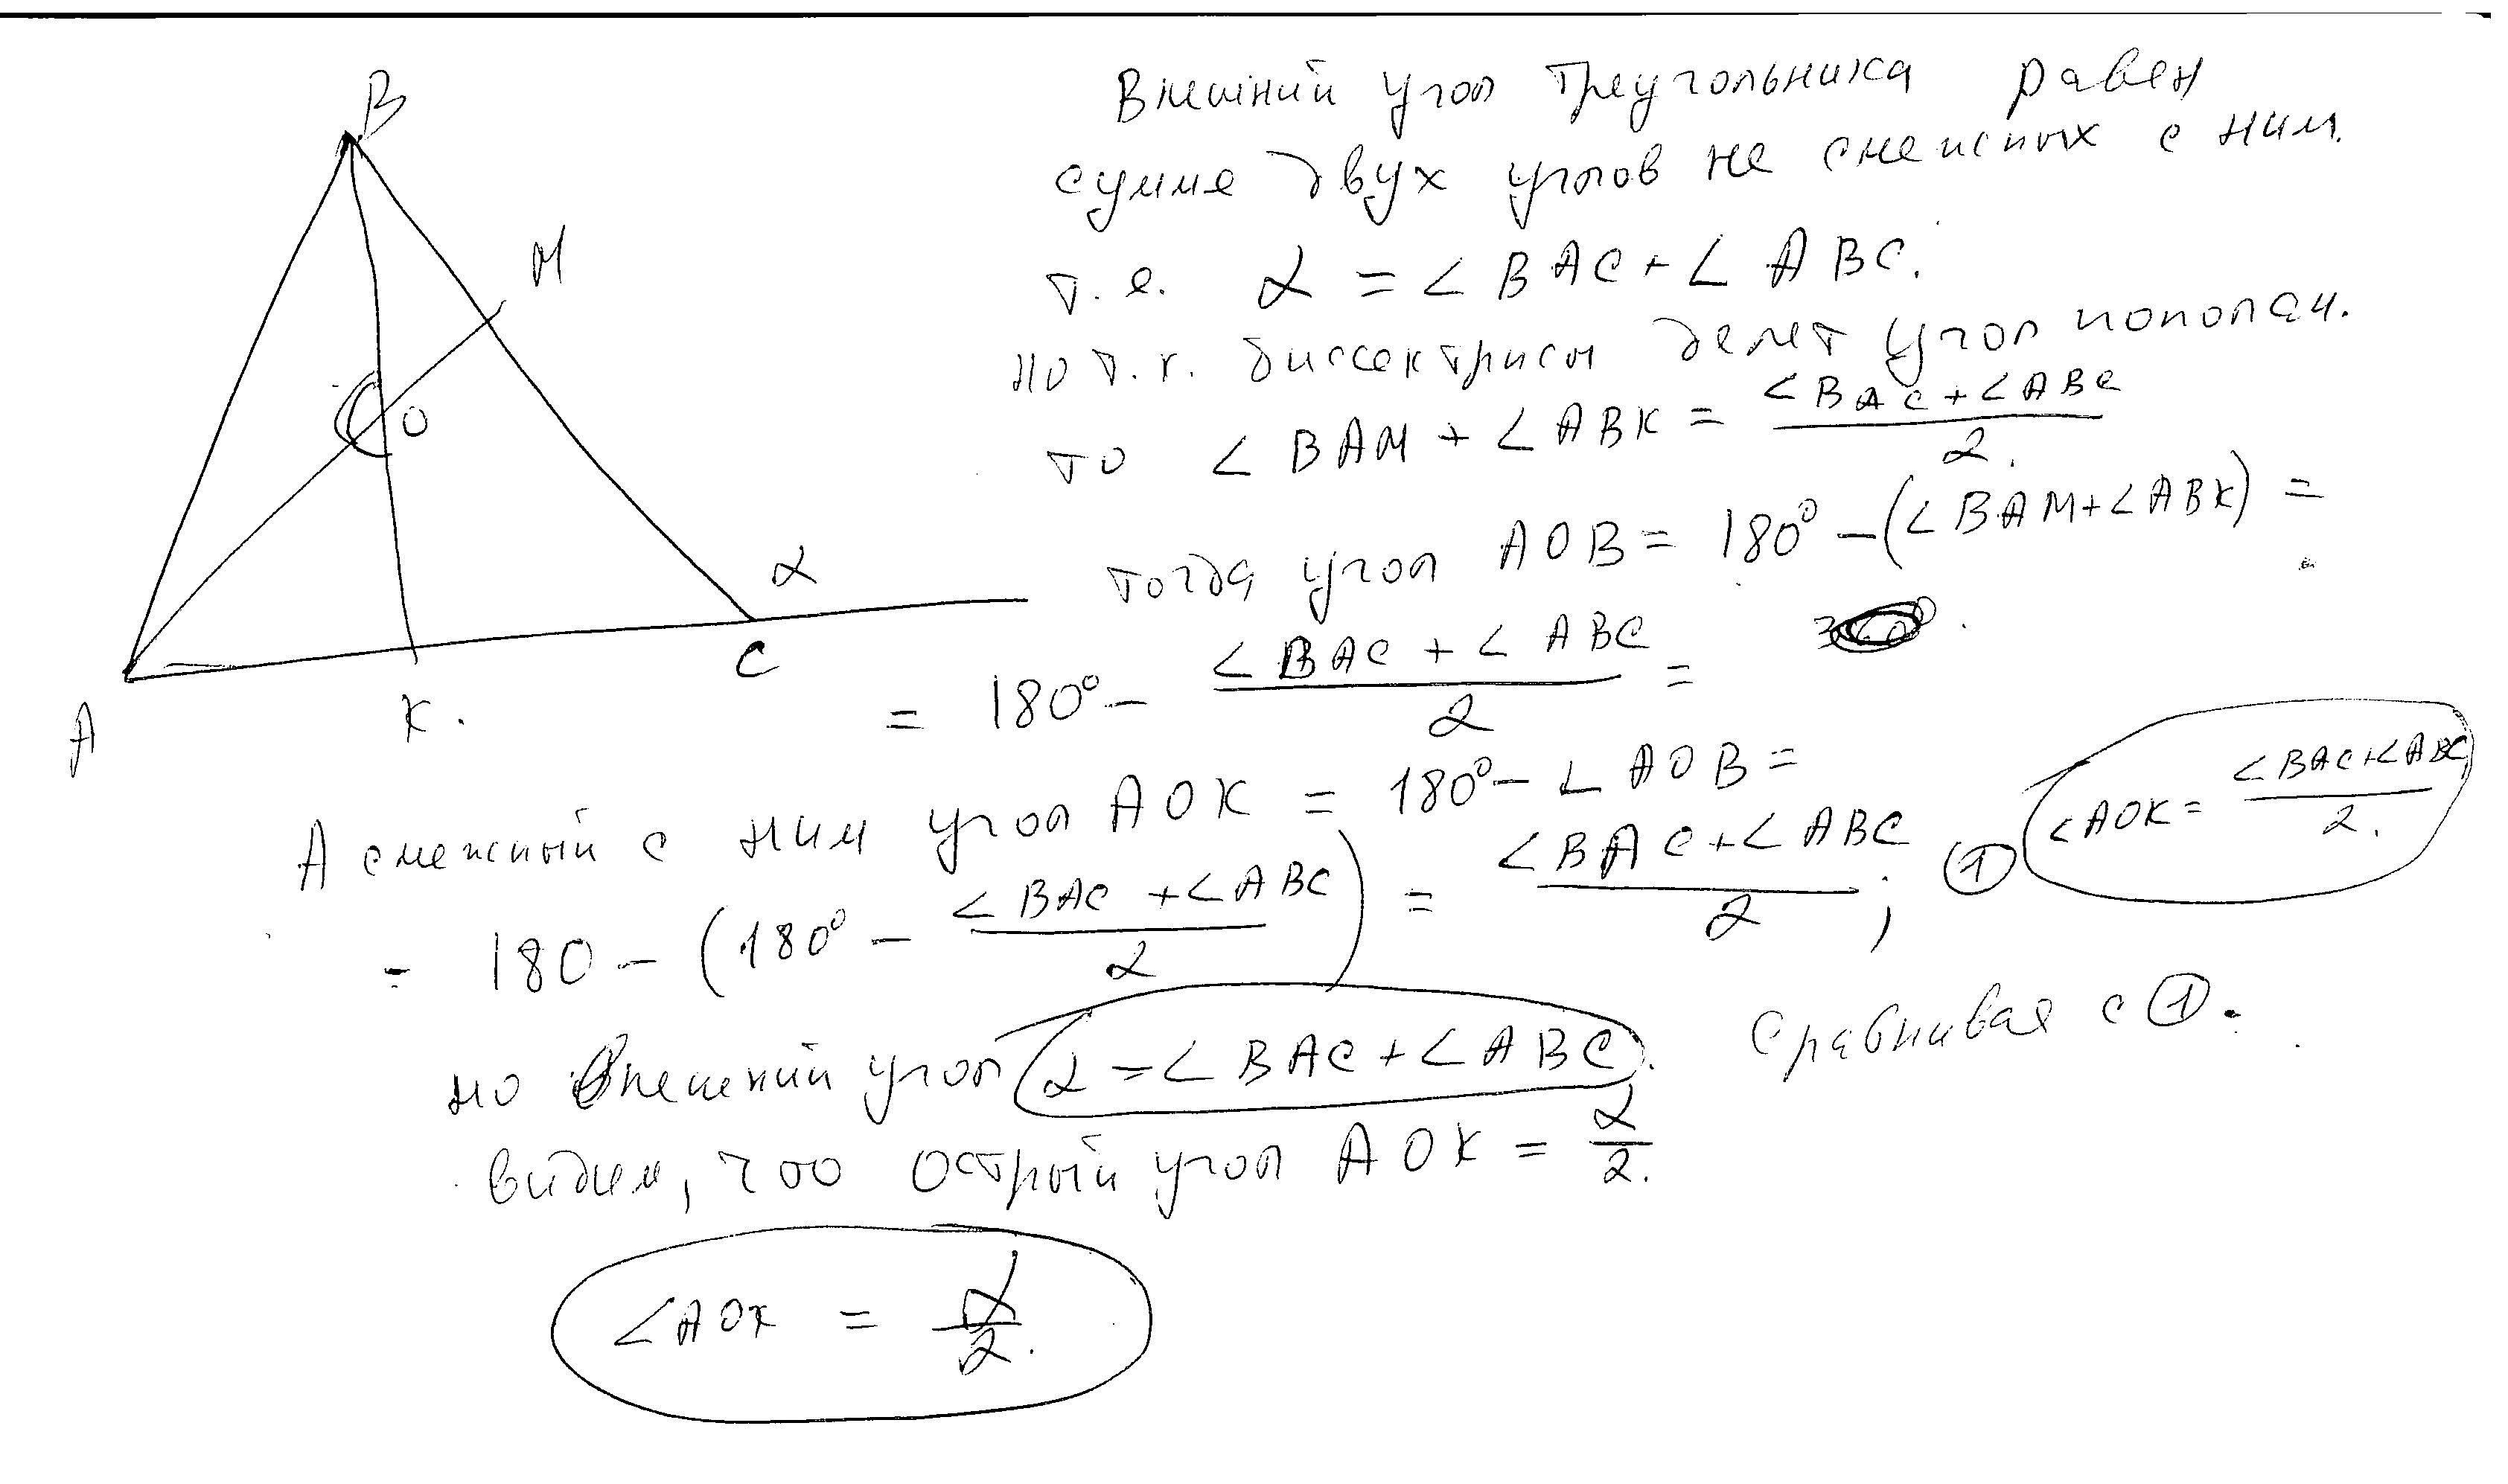 B
M
O
α
A
K.
C
Внешний угол треугольника равен
сумме двух углов не смежных с ним.
т.е. α = ∠BAC + ∠ABC.
но т.к. биссектрисы делят угол пополам.
то ∠BAM + ∠ABK = (∠BAC + ∠ABC)/2.
тогда угол AOB = 180° - (∠BAM + ∠ABK) =
= 180° - (∠BAC + ∠ABC)/2 =
А смежный с ним угол AOK = 180° - ∠AOB =
= 180 - (180° - (∠BAC + ∠ABC)/2) = (∠BAC + ∠ABC)/2 ; ① ∠AOK = (∠BAC + ∠ABC)/2.
но внешний угол α = ∠BAC + ∠ABC. Сравнивая с ①.
видим, что острый угол AOK = α/2.
∠AOK = α/2.